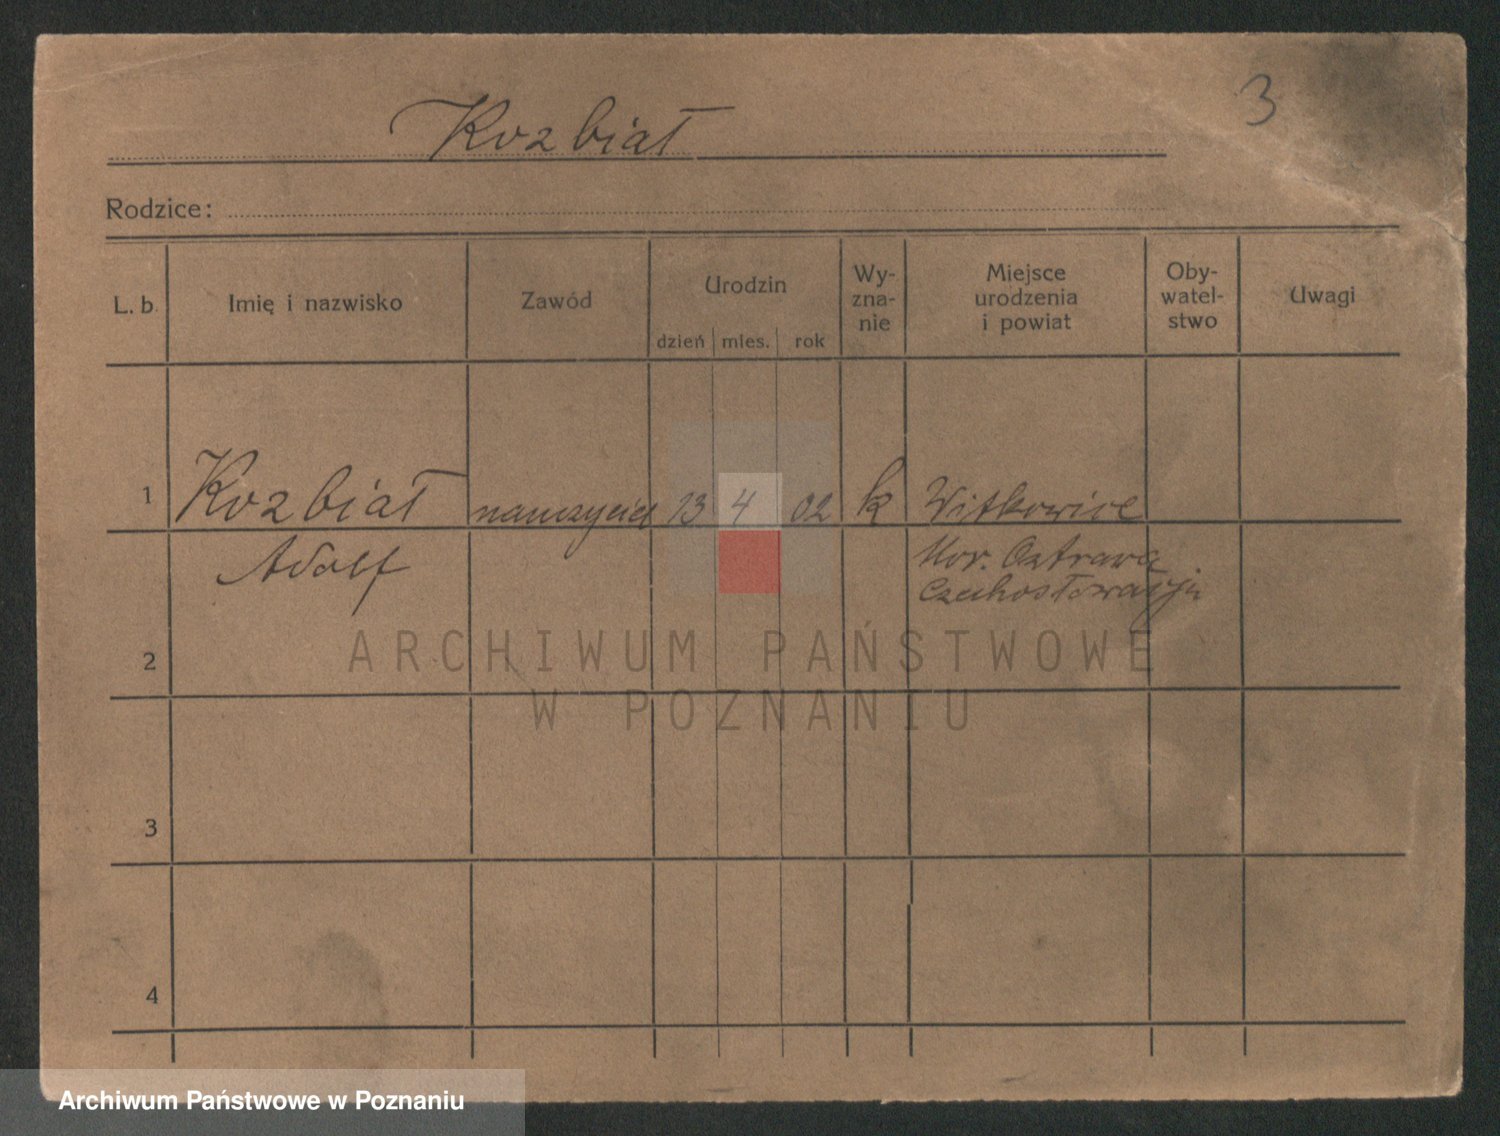 Kozbiał
3
Rodzice:
L. b. Imię i nazwisko Zawód Urodzin dzień mies. rok Wy-zna-nie Miejsce urodzenia i powiat Oby-watel-stwo Uwagi
1 Kozbiał nauczyciel 13 4 02 k Witkowice
Adolf Mor. Ostrawa
Czechosłowacja
2
ARCHIWUM PAŃSTWOWE
W POZNANIU
3
4
Archiwum Państwowe w Poznaniu